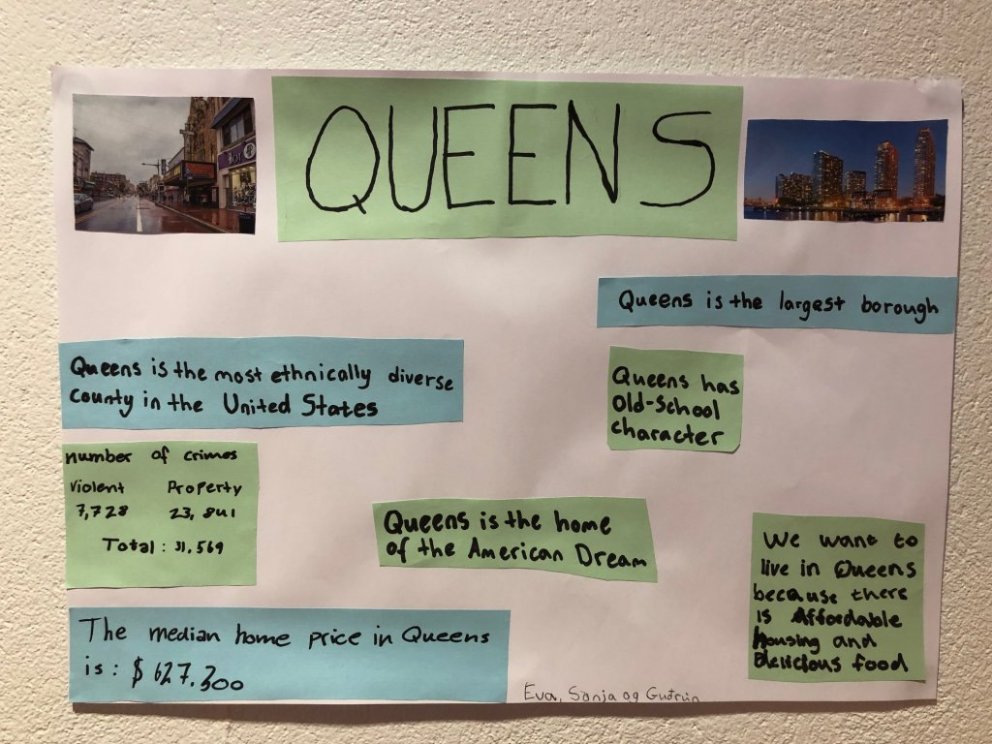 QUEENS
Queens is the largest borough
Queens is the most ethnically diverse
county in the United States
Queens has
old-school
character
number of crimes
Violent Property
7,728 23,841
Total: 31.569
Queens is the home
of the American Dream
We want to
live in Queens
because there
is Affordable
Housing and
Delicious food
The median home price in Queens
is: $ 627.300
Eva, Sonja og Guðrún